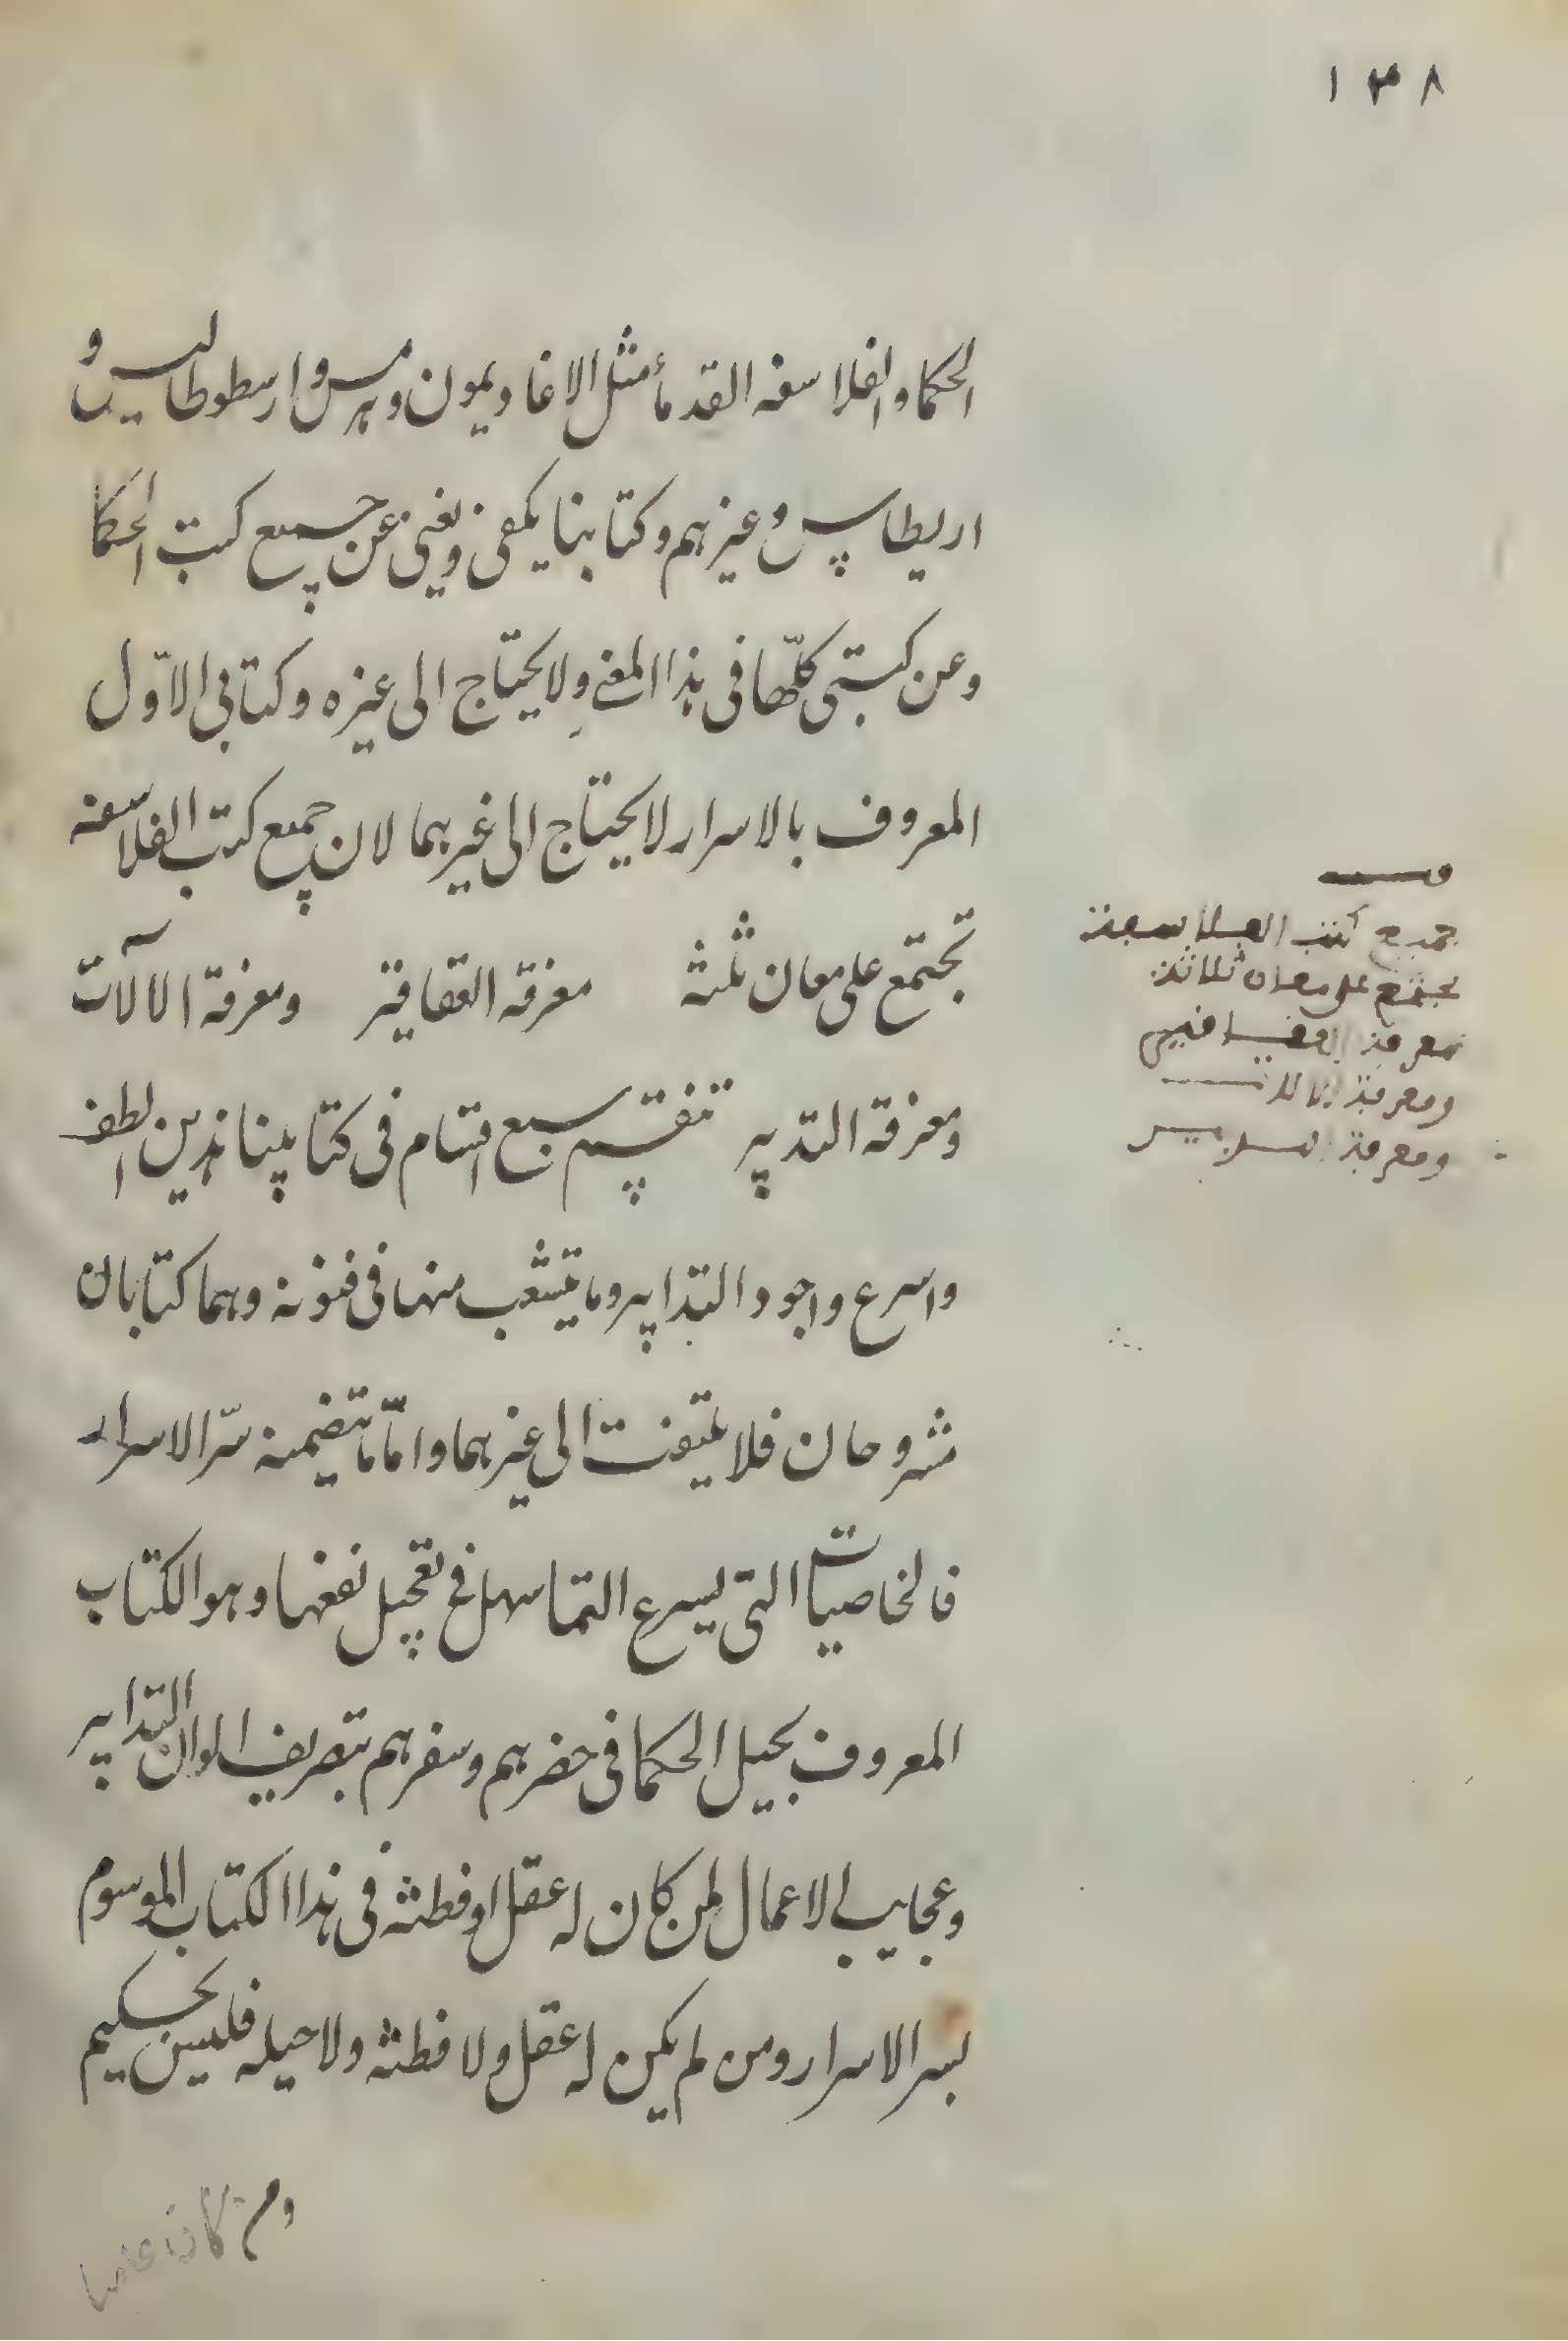 ١٣٨
الحكما والفلاسفه القدمأ مثل الاغاديمون وهرمس وارسطوطاليس و
اريطاس وغيرهم وكتابنا يكفى ويغنى عن جميع كتب الحكما
وعن كتبى كلّها فى هذا المعنى ولا يحتاج الى غيره وكتابى الاوّل
المعروف بالاسرار لا يحتاج الى غيرهما لان جميع كتب الفلاسفه
تجتمع على معان ثلثه معرفة العقاقير ومعرفة الآلات
ومعرفة التدبير تنقسم سبع اقسام فى كتابينا هذين الطف
واسرع واجود التدابير وما يتشعب منها فى فنونه وهما كتابان
مشروحان فلا يلتفت الى غيرهما وامّا ما يتضمنه سرّ الاسرار
فالخاصيات التى يسرع التماسهل فى تعجيل نفعها وهو الكتاب
المعروف بحيل الحكما فى حضرهم وسفرهم بتصريف الوان التدابير
وعجايب الاعمال لمن كان له عقل او فطنه فى هذا الكتاب الموسوم
بسر الاسرار ومن لم يكن له عقل ولا فطنه ولا حيله فليس بحكيم
ومن كان
جميع كتب الفلاسفة
يجتمع على معان ثلاثة
معرفة العقاقير
ومعرفة الالات
ومعرفة التدبير